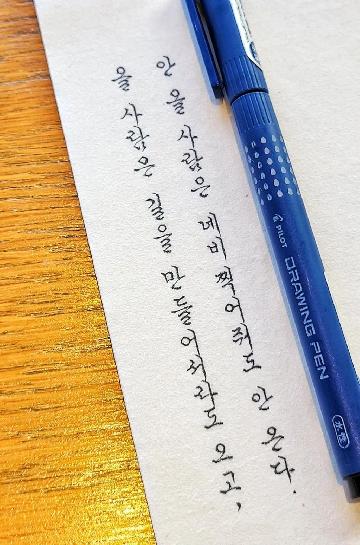 올 사람은 길을 만들어서라도 오고,
안 올 사람은 네비 찍어줘도 안 온다.
PILOT
DRAWING PEN